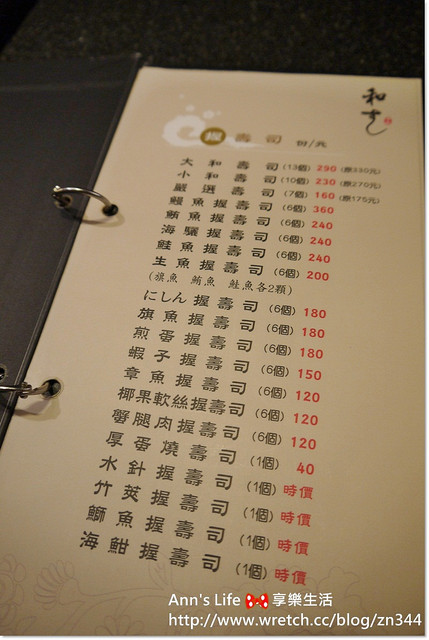 和すし
握壽司 份/元
大和壽司 (13個) 290 (原330元)
小和壽司 (10個) 230 (原270元)
嚴選壽司 (7個) 160 (原175元)
鰻魚握壽司 (6個) 360
鮪魚握壽司 (6個) 240
海驪握壽司 (6個) 240
鮭魚握壽司 (6個) 240
生魚握壽司 (6個) 200
(旗魚 鮪魚 鮭魚各2顆)
にしん握壽司 (6個) 180
旗魚握壽司 (6個) 180
煎蛋握壽司 (6個) 180
蝦子握壽司 (6個) 150
章魚握壽司 (6個) 120
椰果軟絲握壽司 (6個) 120
蟹腿肉握壽司 (6個) 120
厚蛋燒壽司 (1個) 40
水針握壽司 (1個) 時價
竹莢握壽司 (1個) 時價
鰤魚握壽司 (1個) 時價
海鮒握壽司 (1個) 時價
Ann's Life 享樂生活
http://www.wretch.cc/blog/zn344